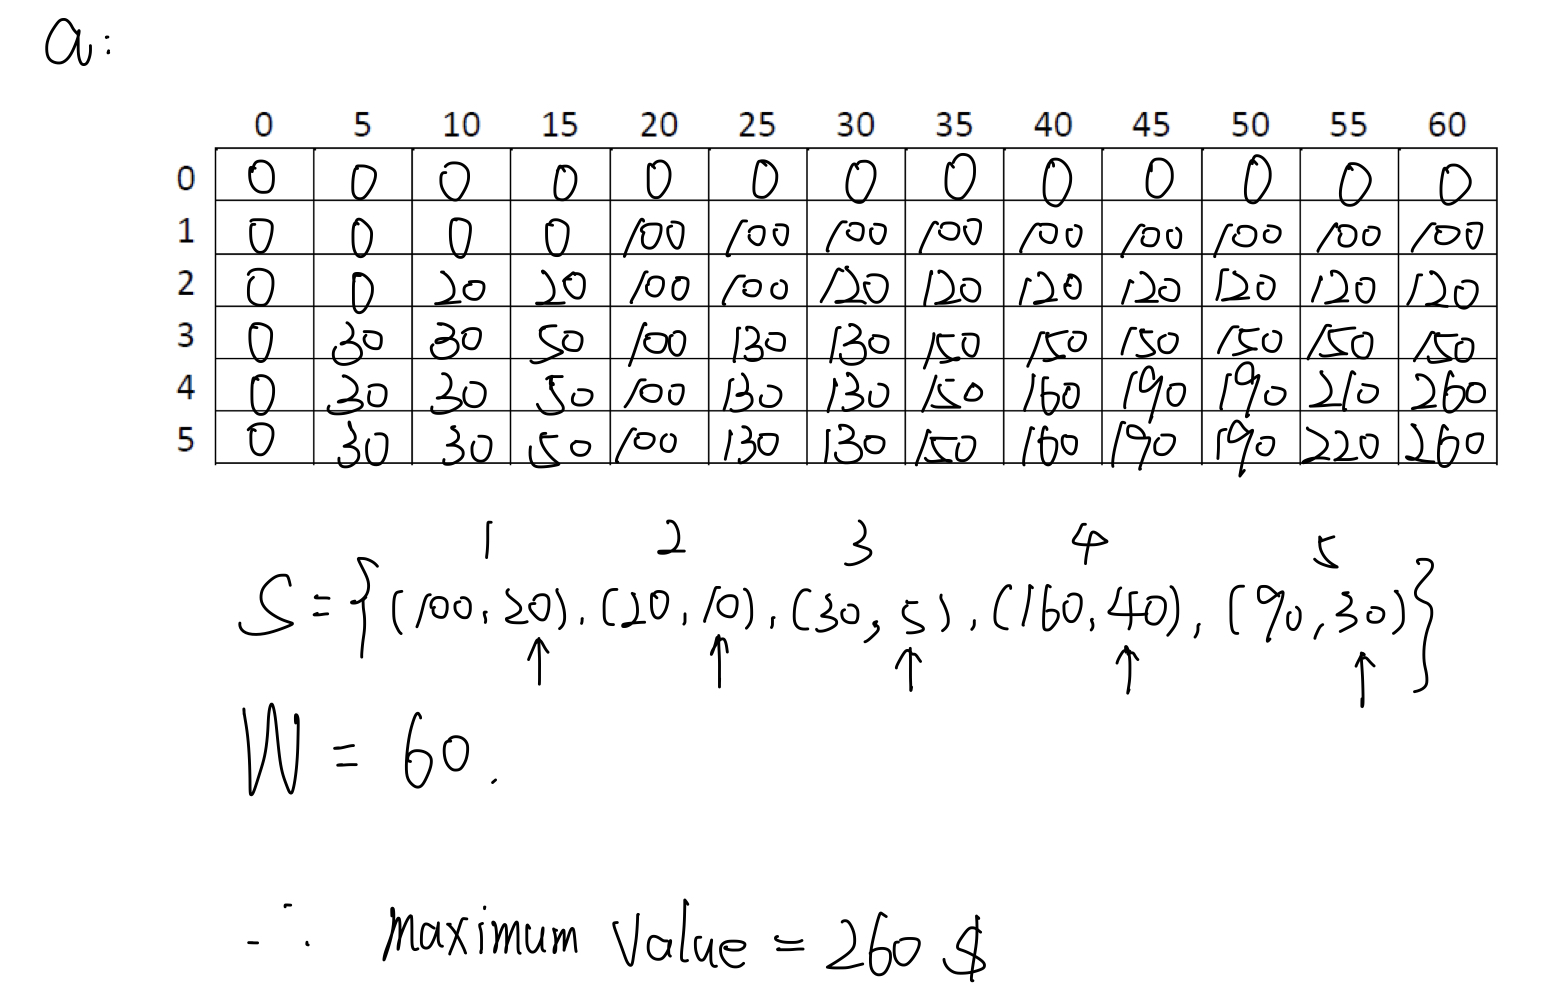 a:
0 5 10 15 20 25 30 35 40 45 50 55 60
0 0 0 0 0 0 0 0 0 0 0 0 0 0
1 0 0 0 0 100 100 100 100 100 100 100 100 100
2 0 0 20 20 100 100 120 120 120 120 120 120 120
3 0 30 30 50 100 130 130 150 150 150 150 150 150
4 0 30 30 50 100 130 130 150 160 190 190 210 260
5 0 30 30 50 100 130 130 150 160 190 190 220 260
1 2 3 4 5
S={(100,20),(20,10),(30,5),(160,40),(90,30)}
↑ ↑ ↑ ↑ ↑
W = 60.
∴ maximum value = 260 $